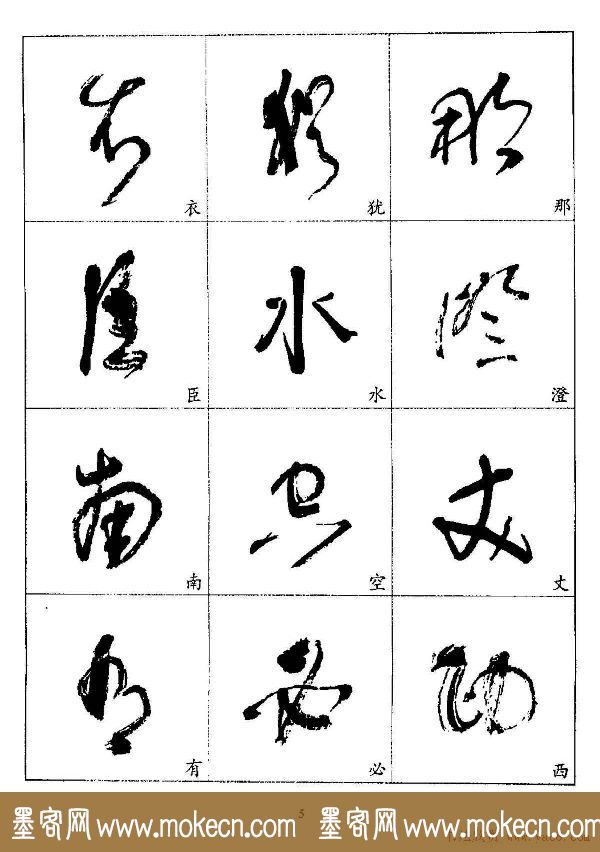 衣 犹 那
臣 水 澄
南 空 丈
有 必 西
5
墨客网 www.mokecn.com 墨客网 www.mokecn.com